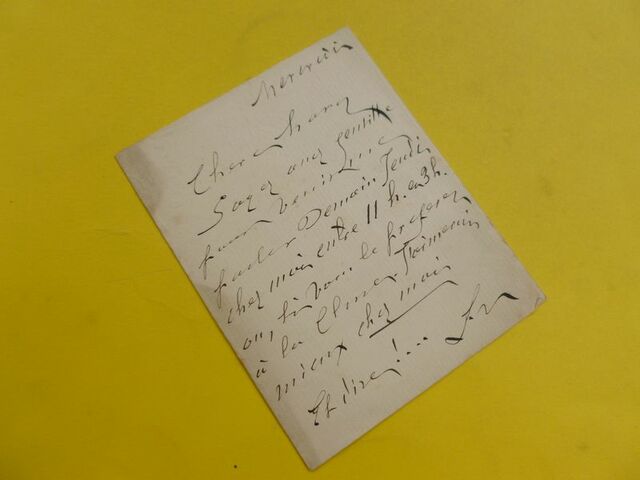 Mercredi
Chere
Soyez assez gentille
pour venir me
parler Demain Jeudi
chez moi entre 11 h. et 3 h.
ou, si vous le préférez
à la
mieux chez moi